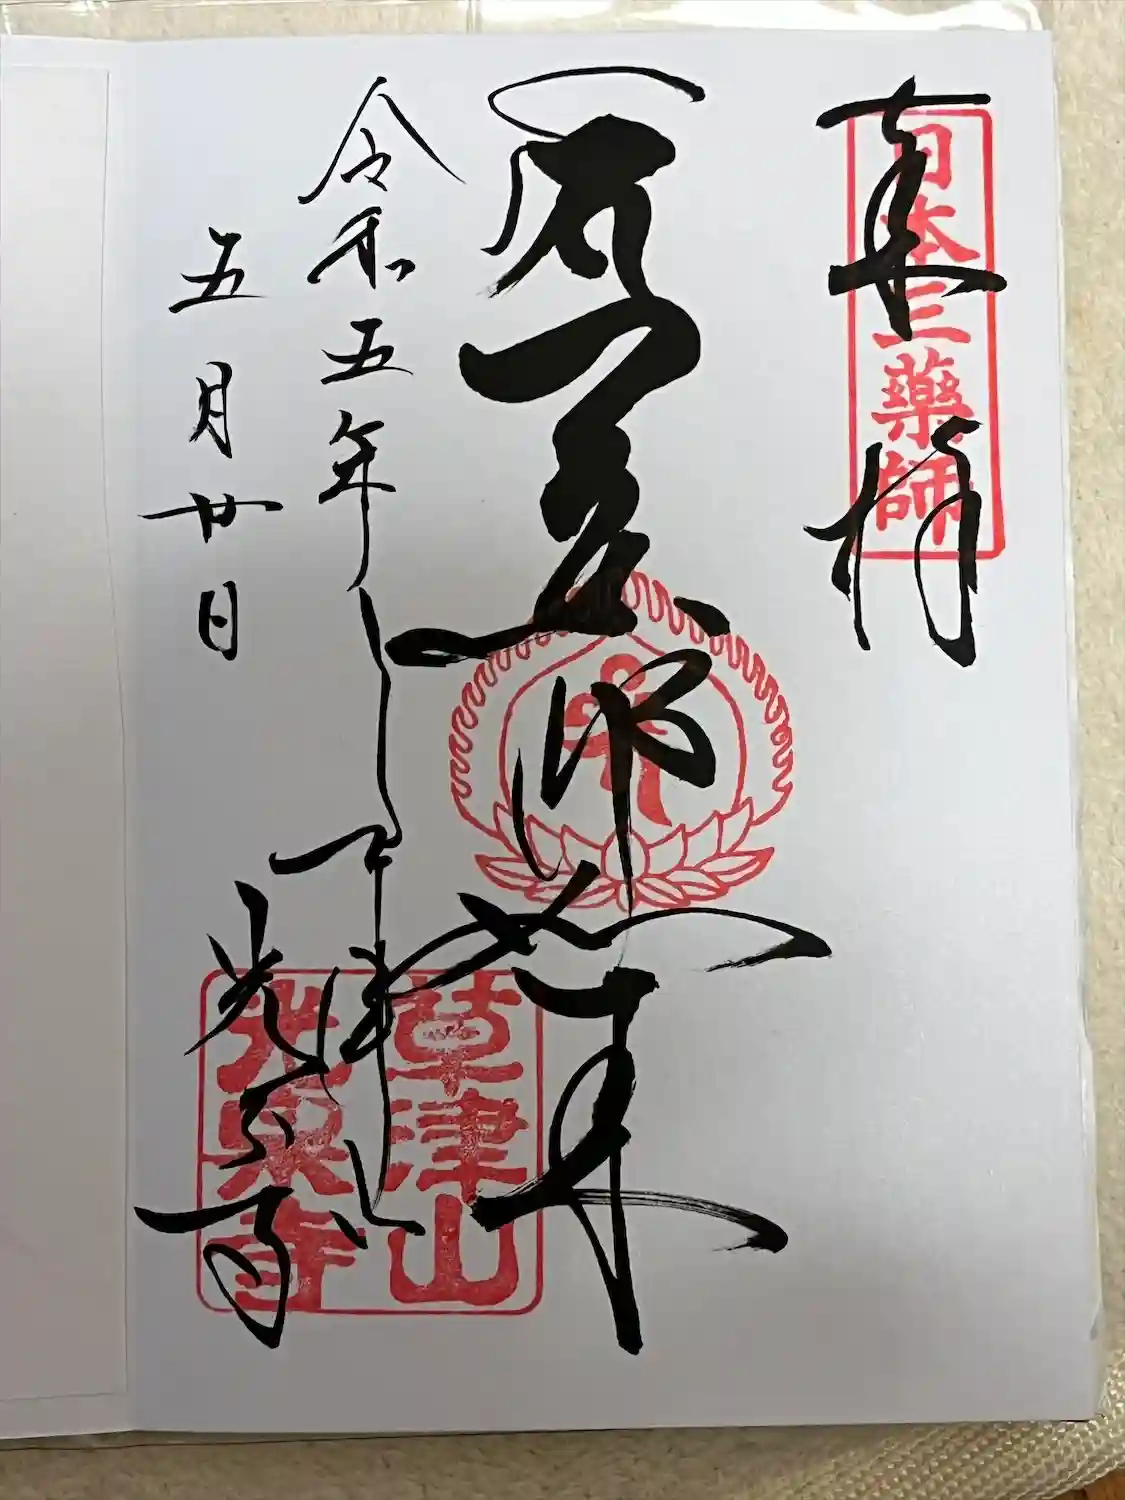 奉拝
日本三薬師
薬師如来
令和五年
五月廿日
草津山
光泉寺
草津山
光泉寺